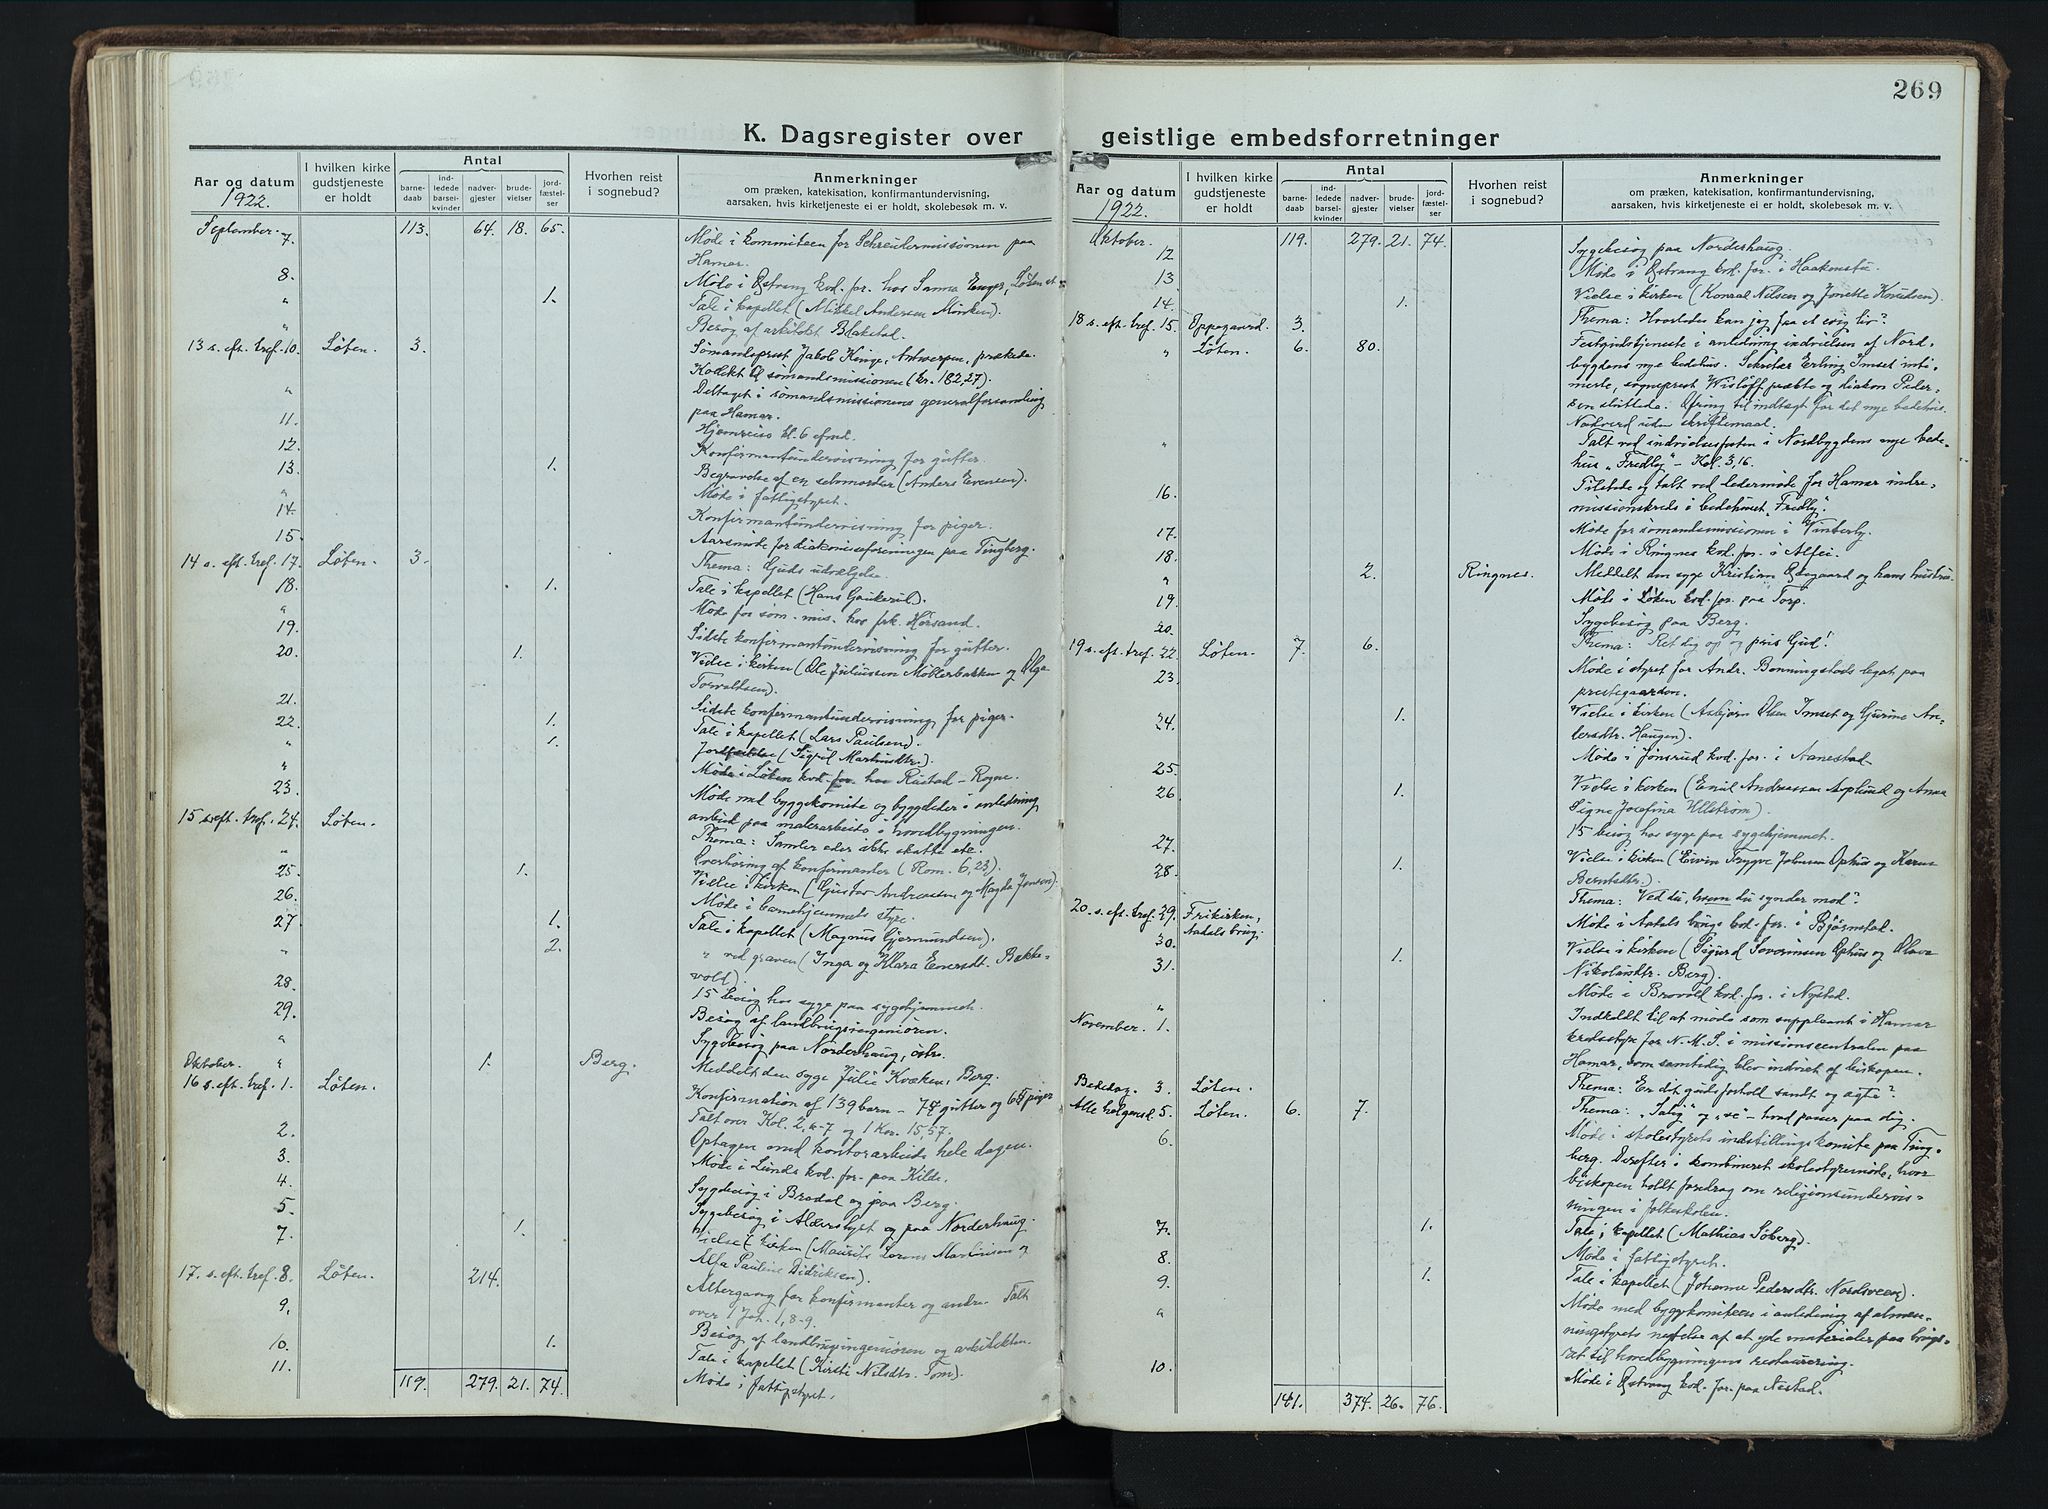 269
K. Dagsregister over geistlige embedsforretninger
Aar og datum
1922.
I hvilken kirke gudstjeneste er holdt
Antal
barnedaab
indledede barselkvinder
nadvergjester
brudevielser
jordfæstelser
Hvorhen reist i sognebud?
Anmerkninger
om præken, katekisation, konfirmantundervisning,
aarsaken, hvis kirketjeneste ei er holdt, skolebesøk m. v.
September 113. 64. 18. 65.
7. Møde i kommiteen for Schreudermissionen paa
Hamar.
8. Møde i Østvang kvd. for. hos Løten
" 1. Tale i kapellet (Mikkel Andersen
" Besøg af arkitekt Blakstad.
13 s. eft. tref. 10. Løten. 3. Sømandsprest Jakob Antwerpen, prækede.
Kollekt til sømandsmissionen (kr. 182,27).
" Deltaget i sømandsmissionens generalforsamling
paa Hamar.
11. Hjemreise kl. 6 efmd.
12. Konfirmantundervisning for gutter.
13. 1. Begravelse af en selvmorder (Anders Evensen).
" Møde i fattigstyret.
14. Konfirmantundervisning for piger.
15. Aarsmøde for diakonisseforeningen paa Tingberg.
14 s. eft. tref. 17. Løten. 3. Thema: Guds udvælgelse.
18. 1. Tale i kapellet (Hans
" Møde for søm. mis. hos frk. Hørsand.
19. Sidste konfirmantundervisning for gutter.
20. 1. Vielse i kirken (Ole Juliussen Møllerbakken og Olga
Torvaldsen).
21. Sidste konfirmantundervisning for piger.
22. 1. Tale i kapellet (Lars Paulsen).
" 1. Jordfæstelse (Sigril
" Møde i Løken kvd. for. hos Rustad – Rogne.
23. Møde med byggekomite og byggeleder i anledning
anbud paa malerarbeide i hovedbygningen.
15 s. eft. tref. 24. Løten. Thema: Samler eder ikke skatte etc.
" Overhøring af konfirmanter (Rom. 6,23).
25. 1. Vielse i kirken (Gustav Andreassen og Magda Jensen).
26. Møde i barnehjemmets styre.
27. 1. Tale i kapellet (Magnus Gjermundsen).
" 2. " ved graven (Inga og Klara Bakke-
vold).
28. 15 besøg hos syge paa sygehjemmet.
29. Besøg af landbrugsingeniøren.
" Sygebesøg paa Norderhaug, østre.
Oktober. " 1. Berg. Meddelt den syge Julie Kvæken, Berg.
16 s. eft. tref. 1. Løten. Konfirmation af 139 barn – 74 gutter og 65 piger
Talt over Kol. 2,6-7 og 1 Kor. 15,57.
2. Optagen med kontorarbeide hele dagen.
3. Møde i Lunde kvd. for. paa Kilde.
4. Sygebesøg i Brodal og paa Berg.
5. Sygebesøg i Alderslyst og paa Norderhaug.
7. 1. Vielse i kirken (Maurits Martinsen og
Alfa Pauline Didriksen).
17. s. eft. tref. 8. Løten. 214. Altergang for konfirmanter og andre. Talt
over 1 Joh. 1,8-9.
9. Besøg af landbrugsingeniøren og arkitekten.
10. 1. Tale i kapellet (Kirsti Nilsdtr. Tom).
11. Møde i fattigstyret.
119. 279. 21. 74.
Aar og datum
1922.
I hvilken kirke gudstjeneste er holdt
Antal
barnedaab
indledede barselkvinder
nadvergjester
brudevielser
jordfæstelser
Hvorhen reist i sognebud?
Anmerkninger
om præken, katekisation, konfirmantundervisning,
aarsaken, hvis kirketjeneste ei er holdt, skolebesøk m. v.
Oktober. 119. 279. 21. 74.
12 Sygebesøg paa Norderhaug.
13 Møde i Østvang kvd. for. i Haakonstu.
14. 1. Vielse i kirken (Konrad Nilsen og Jonette Knudsen).
18 s. eft. tref. 15. Oppegaard. 3. Thema: Hvorledes kan jeg faa et evig liv?
" Løten. 6. 80. Festgudstjeneste i anledning indvielsen af Nord-
bygdens nye bedehus. Sekretær Erling Imset inti-
merte, sogneprest Wisløff præket og diakon Peder-
sen sluttede. Ofring til indtægt for det nye bedehus.
Nadverd uden skriftemaal.
" Talt ved indvielsesfesten i Nordbygdens nye bede-
hus "Fredly" – Kol. 3,16.
16. Tilstede og talt ved ledermøde for Hamar indre-
missionskreds i bedehuset "Fredly".
17. Møde for sømandsmissionen i Vinterby.
18. Møde i Ringnes kvd. for. i Alfei.
" 2. Ringnes. Meddelt den syge Kristian og hans hustru
19. Møde i Løken kvd. for. paa Torp.
20. Sygebesøg paa Berg.
19 s. eft. tref. 22. Løten. 7. 6. Thema: Ret dig op og pris Gud!
23. Møde i styret for Andr. Bonningstads legat paa
prestegaarden.
24. 1. Vielse i kirken (Asbjørn Olsen Imset og Gurine An-
dersdtr. Haugen).
25. Møde i Jønsrud kvd. for. i Aanestad.
26 1. Vielse i kirken (Emil Andreassen Asplund og Anna
Signe Josefina Ullstrøm).
27. 15 besøg hos syge paa sygehjemmet.
28. 1. Vielse i kirken (Erwin Trygve Johnsen Ophus og Karen
Berntsdtr.).
20. s. eft. tref. 29. Frikirken, Aadalsbrug. Thema: Ved du, hvem du synder mod?
30. Møde i Aadals brugs kvd. for. i Bjørnstad.
31. 1. Vielse i kirken (Sigurd Severinsen Ophus og Olava
Nikolaisdtr. Berg).
" Møde i Brovold kvd. for. i Nystad.
November. 1. Indkaldt til at møde som suppleant i Hamar
kredsstyre for N.M.S. i missionscentralen paa
Hamar, som samtidig blev indviet af biskopen.
Bededag 3. Løten. Thema: Er dit gudsforhold sandt og ægte?
Alle helgensd. 5. Løten. 6. 7. Thema: "Salig" og "ve" – hvad passer paa dig
6. Møde i skolestyrets indstillingskomite paa Ting-
berg. Derefter i kombineret skolestyremøde, hvor
biskopen holdt foredrag om religionsundervis-
ningen i folkeskolen.
7. 1. Tale i kapellet (Mathias Søberg).
8. Møde i fattigstyret.
9. 1. Tale i kapellet (Johanne Pedersdtr. Nordsveen).
" Møde med byggekomiteen i anledning af almen-
ningstyrets negtelse af at yde materialer paa brugs-
ret til hovedbygningens restaurering.
10. Møde i Østvang kvd. for. paa Nestad.
141. 374. 26. 76.